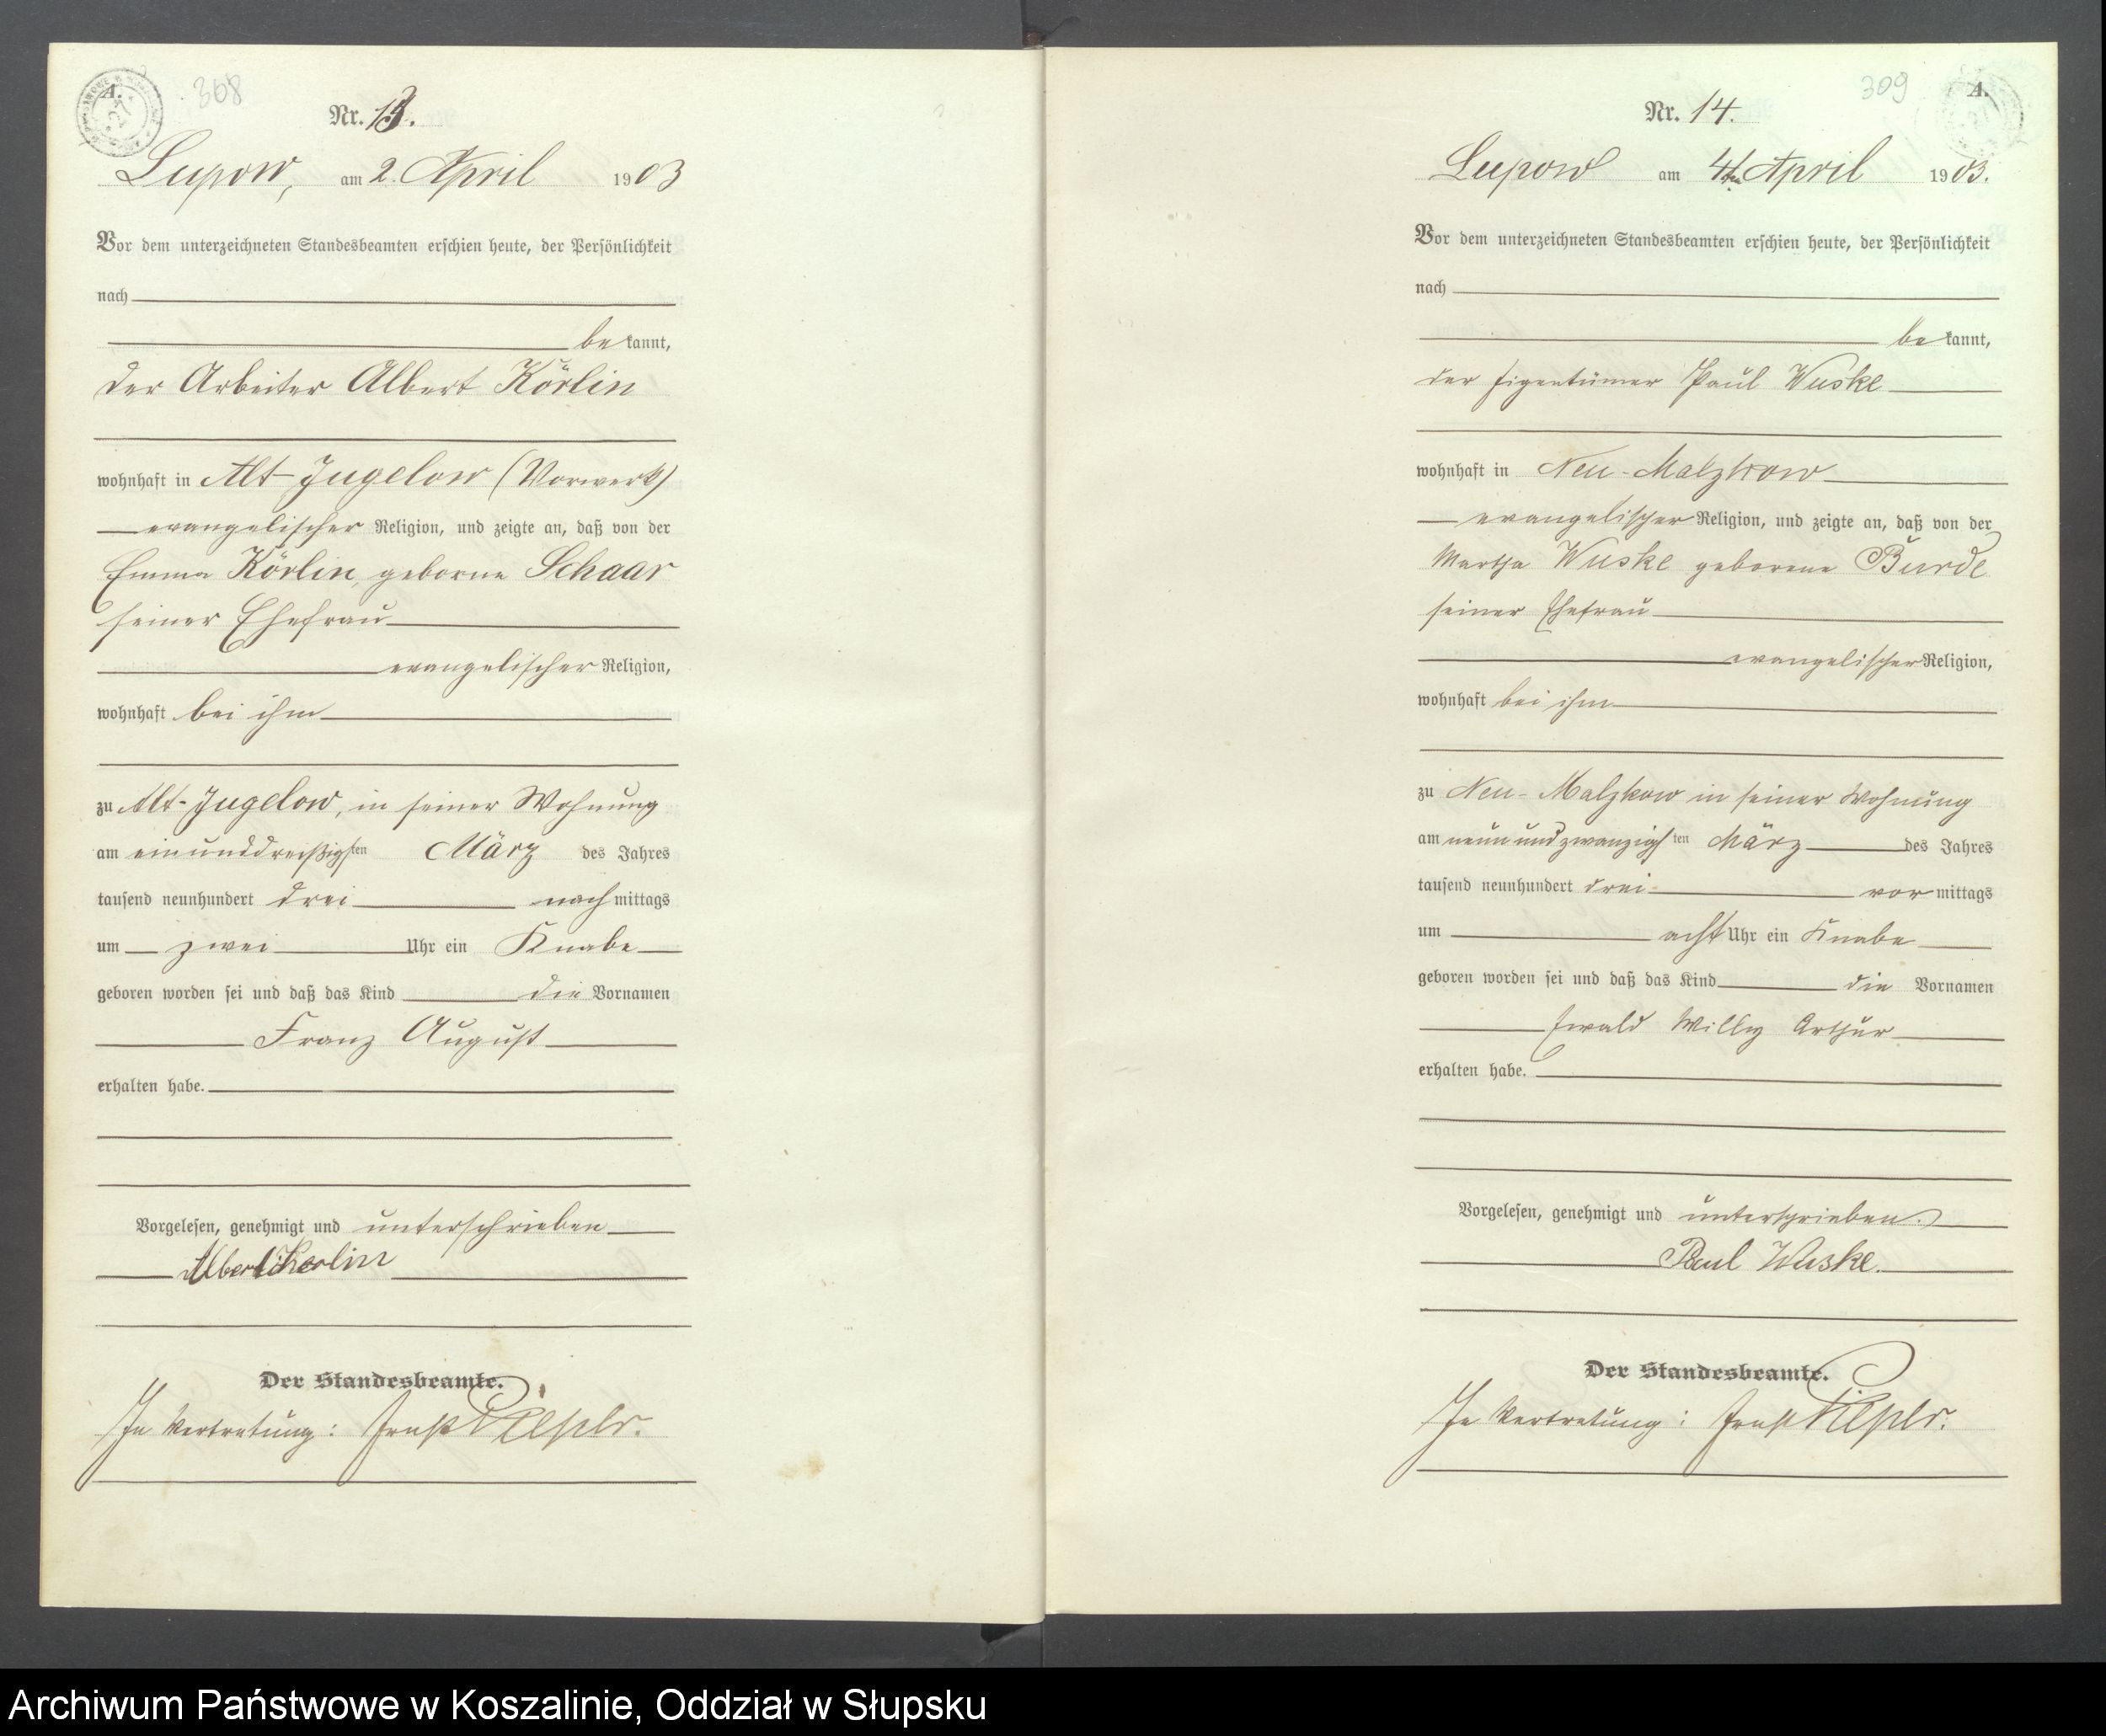 A.
368
Nr. 13.
Lupow, am 2. April 1903
Vor dem unterzeichneten Standesbeamten erschien heute, der Persönlichkeit
nach
bekannt,
der Arbeiter Albert Körlin
wohnhaft in Alt-Jugelow (Vorwerk)
evangelischer Religion, und zeigte an, daß von der
Emma Körlin, geborne Schaar
seiner Ehefrau
evangelischer Religion,
wohnhaft bei ihm
zu Alt-Jugelow, in seiner Wohnung
am einunddreißigsten März des Jahres
tausend neunhundert drei nachmittags
um zwei Uhr ein Knabe
geboren worden sei und daß das Kind die Vornamen
Franz August
erhalten habe.
Vorgelesen, genehmigt und unterschrieben
Albert Kerlin
Der Standesbeamte.
In Vertretung: Ernst
309
A.
Nr. 14.
Lupow am 4ten April 1903.
Vor dem unterzeichneten Standesbeamten erschien heute, der Persönlichkeit
nach
bekannt,
der Eigentümer Paul Wuske
wohnhaft in Neu-Malzkow
evangelischer Religion, und zeigte an, daß von der
Martha Wuske geborene Burde
seiner Ehefrau
evangelischer Religion,
wohnhaft bei ihm
zu Neu-Malzkow in seiner Wohnung
am neunundzwanzigsten März des Jahres
tausend neunhundert drei vormittags
um acht Uhr ein Knabe
geboren worden sei und daß das Kind die Vornamen
Ewald Willy Arthur
erhalten habe.
Vorgelesen, genehmigt und unterschrieben.
Paul Wuske.
Der Standesbeamte.
In Vertretung: Ernst
Archiwum Państwowe w Koszalinie, Oddział w Słupsku